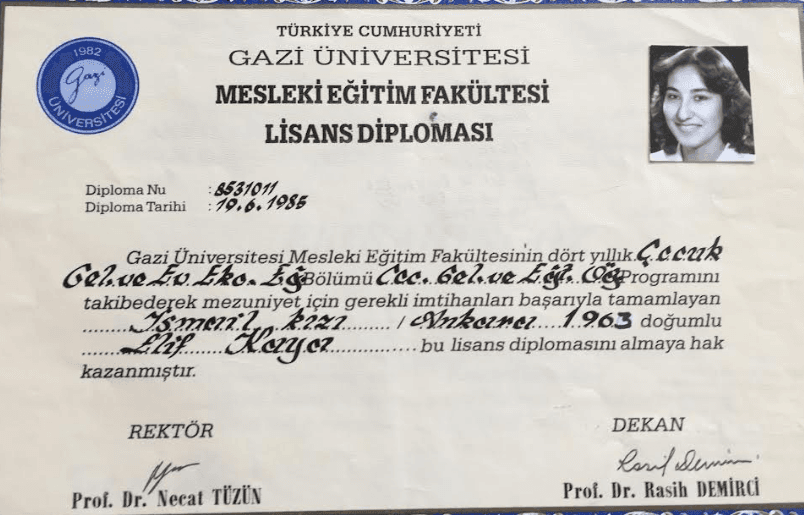 TÜRKİYE CUMHURİYETİ
GAZİ ÜNİVERSİTESİ
MESLEKİ EĞİTİM FAKÜLTESİ
LİSANS DİPLOMASI
1982
Gazi
ÜNİVERSİTESİ
Diploma Nu : 8531011
Diploma Tarihi : 19.6.1985
Gazi Üniversitesi Mesleki Eğitim Fakültesinin dört yıllık Çocuk
Gel. ve Ev Eko. Eğ Bölümü Çoc. Gel. ve Eğt. Öğ Programını
takibederek mezuniyet için gerekli imtihanları başarıyla tamamlayan
........İsmail kızı....... / Ankara....1963 doğumlu
......Elif......Kaya............. bu lisans diplomasını almaya hak
kazanmıştır.
REKTÖR
Prof. Dr. Necat TÜZÜN
DEKAN
Rasih Demirci
Prof. Dr. Rasih DEMİRCİ